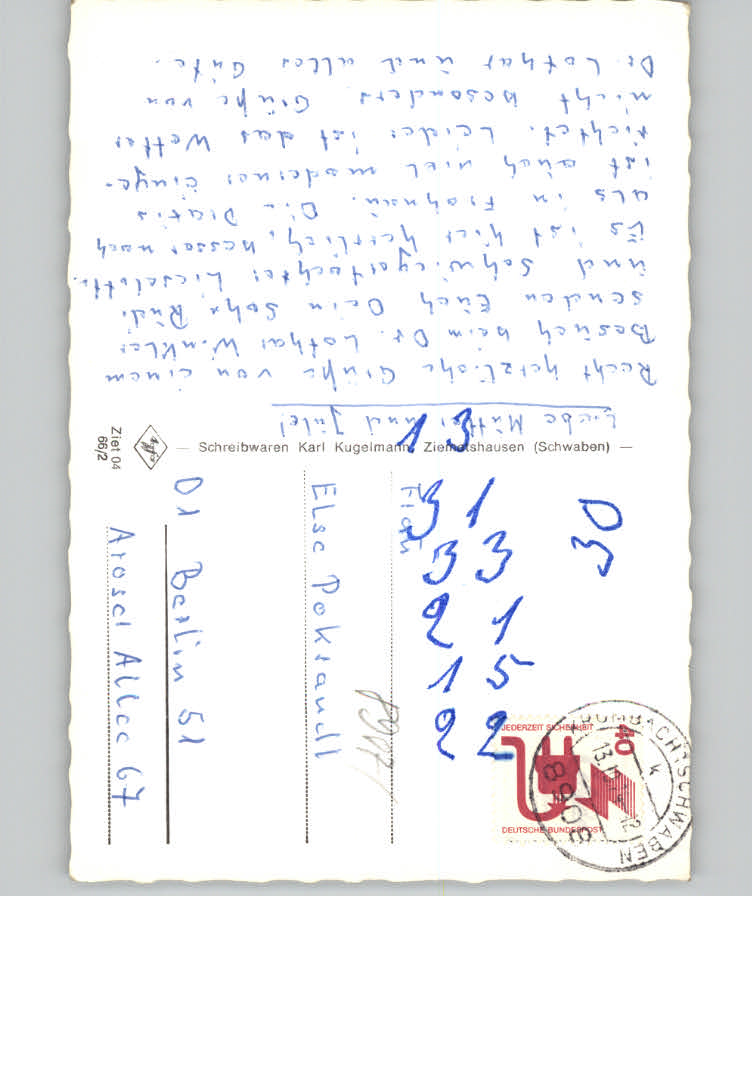 Liebe Mütter und Jüle!
Recht herzliche Grüße von einem
Besüch beim Dr. Lothar Winkler
senden Eüch Dein Sohn Rüdi
ünd Schwiegertochter Lieselotte.
Es ist hier herrlich, besser noch
als in Frohnau. Die Praxis
ist aüch viel moderner einge-
richtet. Leider ist das Wetter
nicht besonders. Grüße von
Dr. Lothar ünd alles Güte.
Ziet 04
66/2
Agfa
— Schreibwaren Karl Kugelmann, Ziemetshausen (Schwaben) —
13
31
33
21
15
22
30
Frau
Else Pokrandt
D1 Berlin 51
Aroser Allee 67
JEDERZEIT SICHERHEIT
40
DEUTSCHE BUNDESPOST
8908
SCHWABEN
k